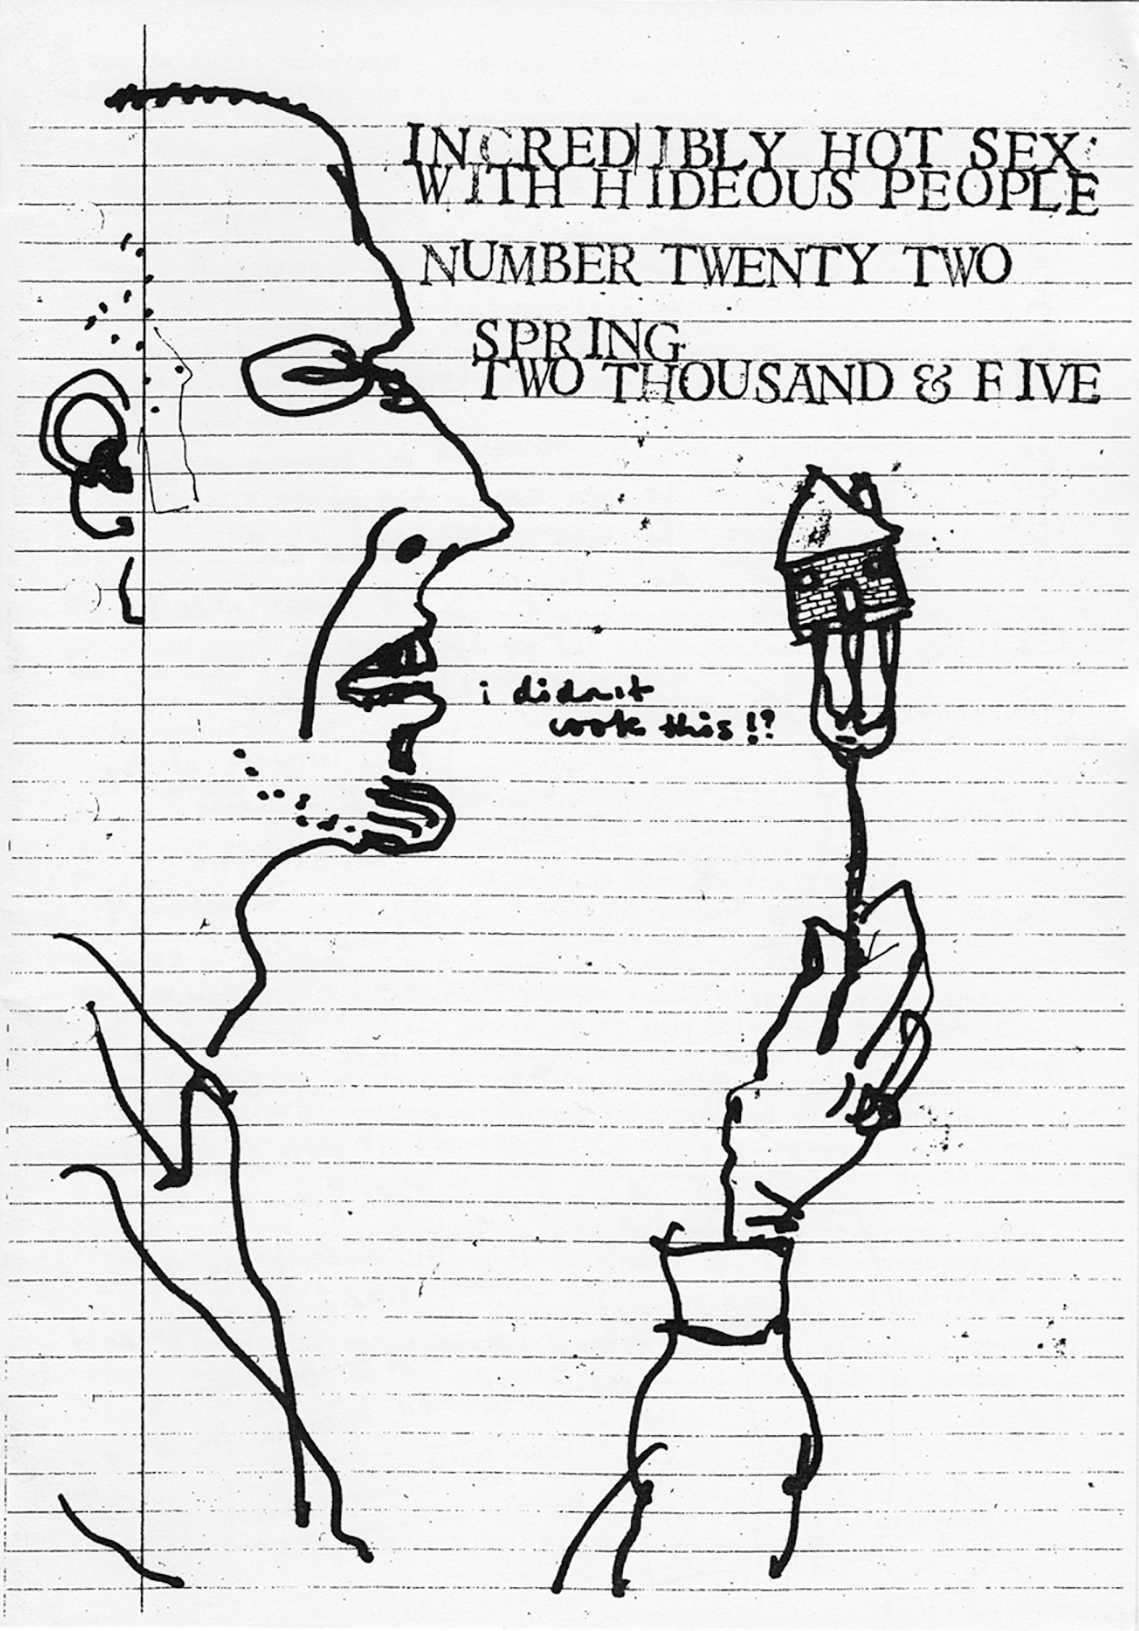 INCREDIBLY HOT SEX
WITH HIDEOUS PEOPLE
NUMBER TWENTY TWO
SPRING
TWO THOUSAND & FIVE
i didn't
cook this!!?